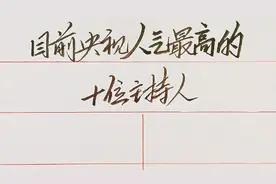 目前央视人气最高的
十位主持人